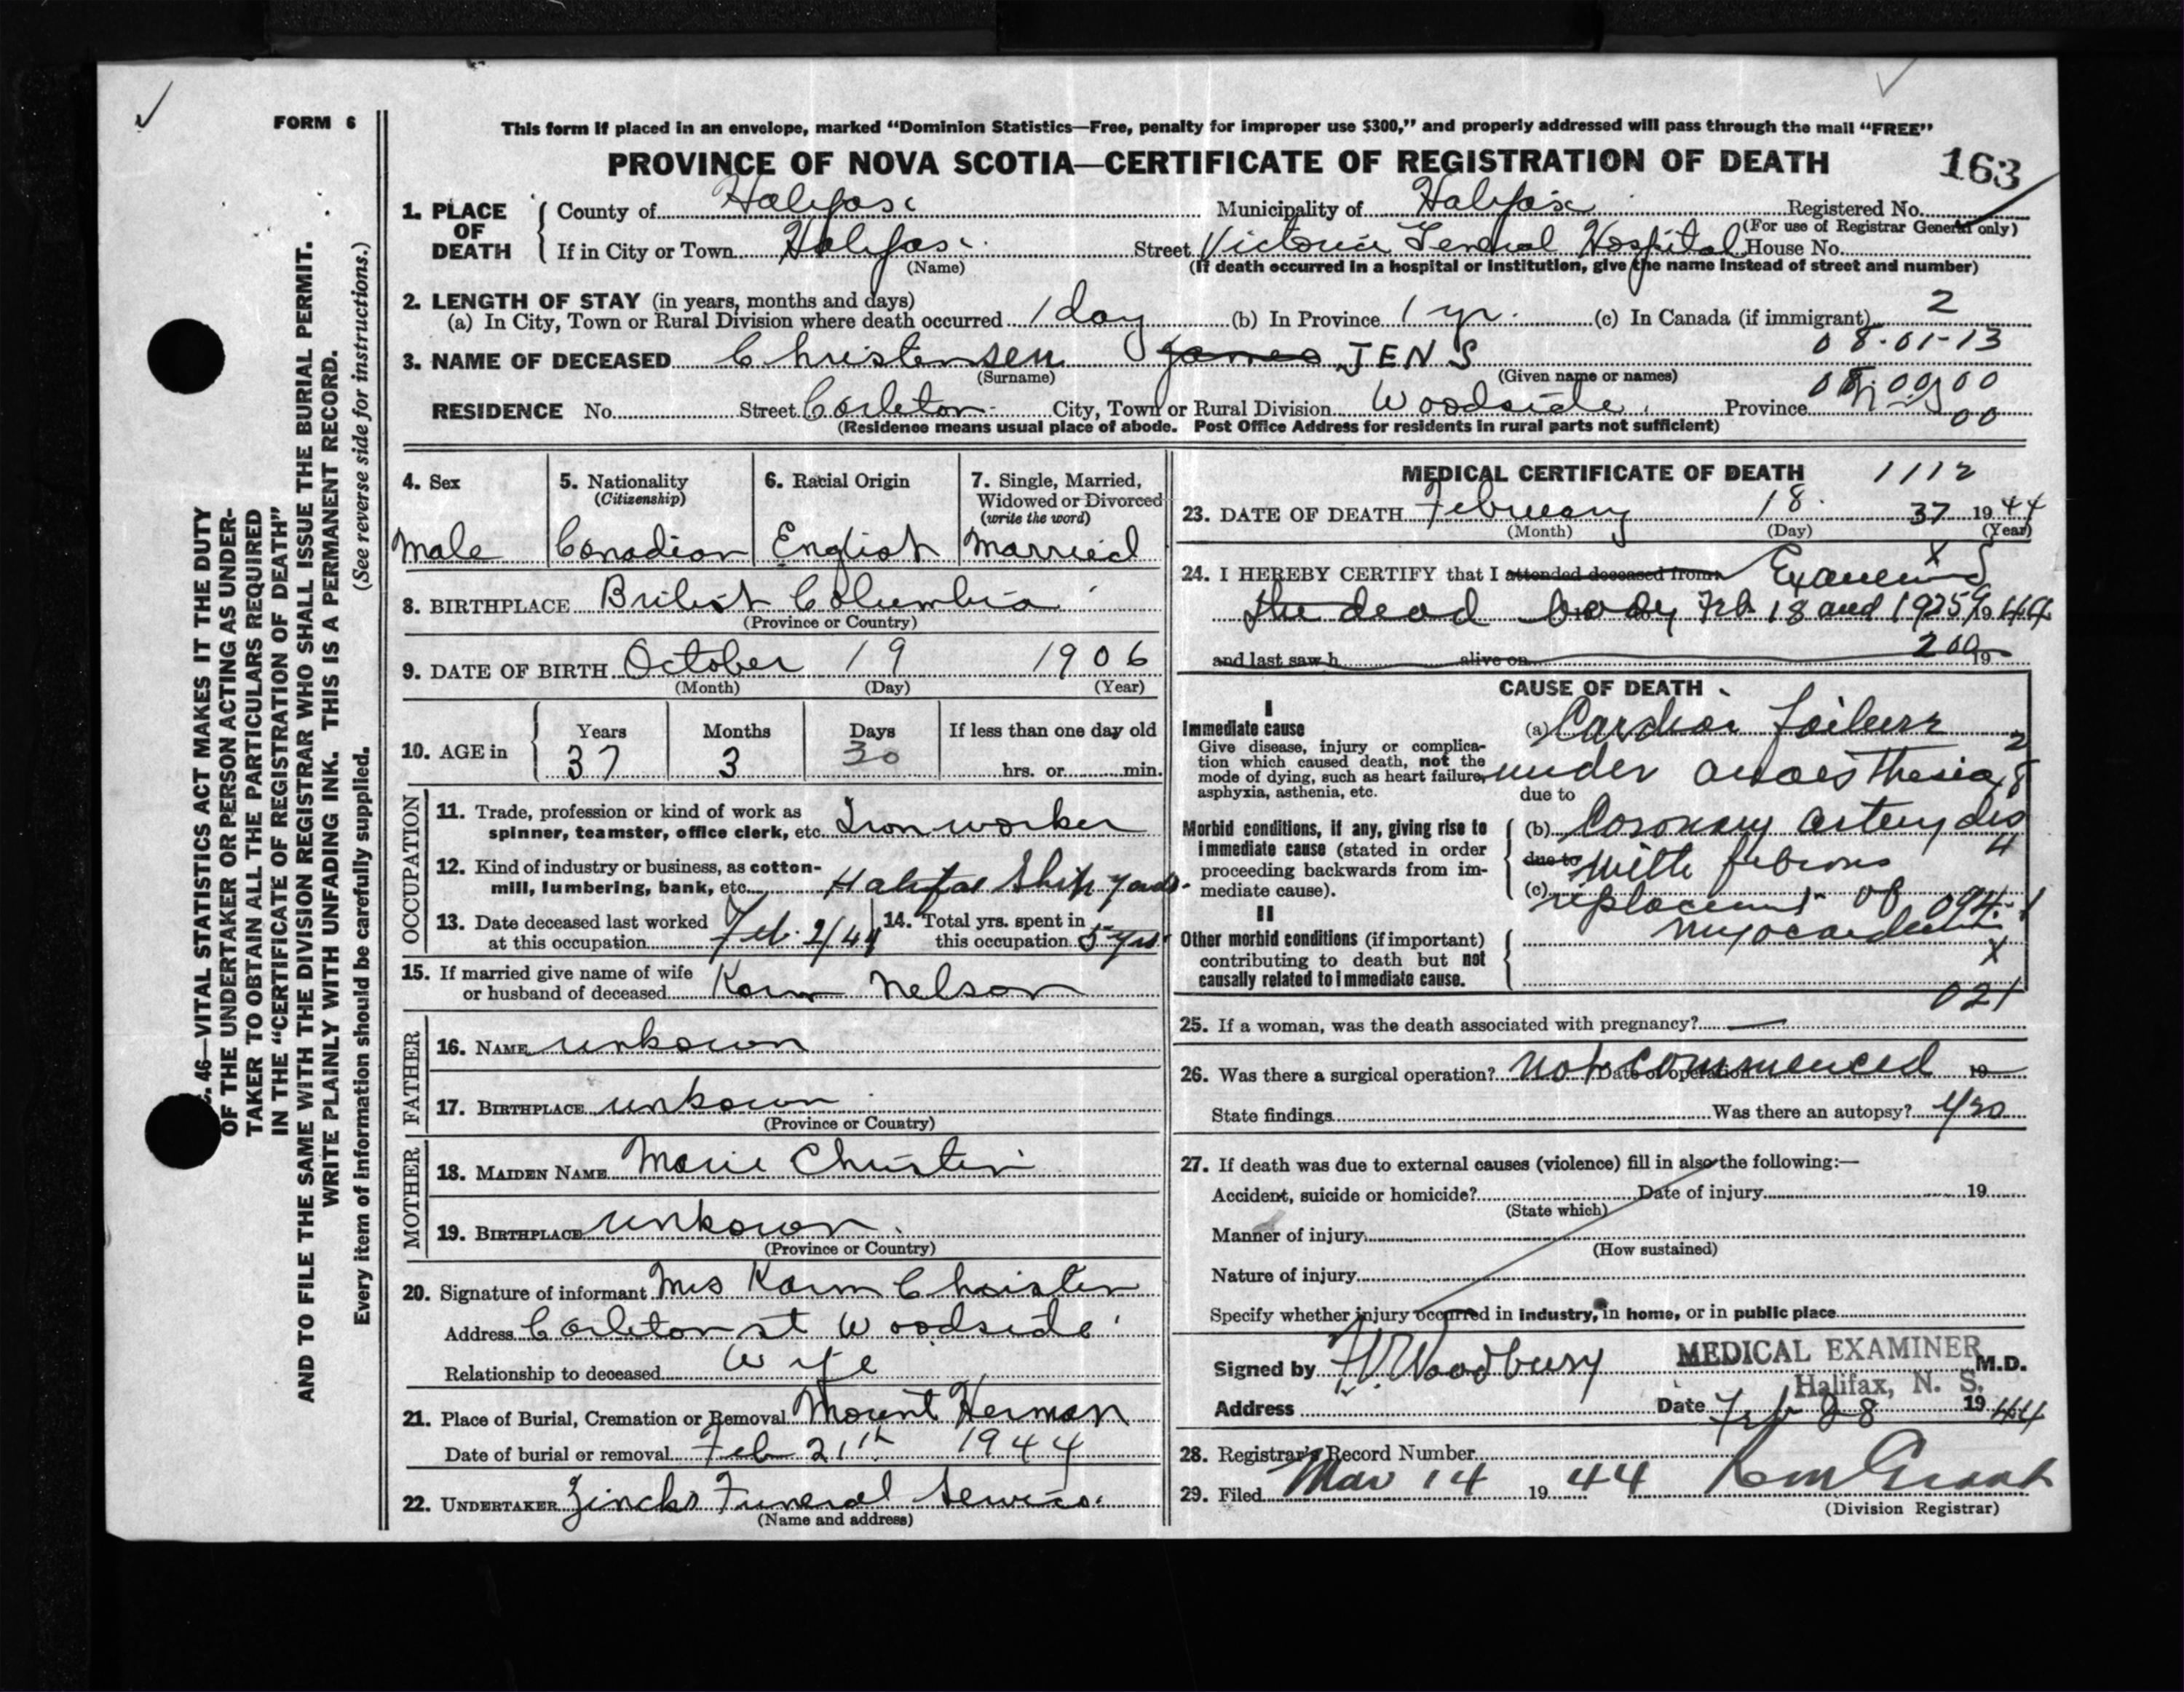 FORM 6
This form if placed in an envelope, marked "Dominion Statistics—Free, penalty for improper use $300," and properly addressed will pass through the mail "FREE"
PROVINCE OF NOVA SCOTIA—CERTIFICATE OF REGISTRATION OF DEATH
163
1. PLACE OF DEATH
County of Halifax Municipality of Halifax Registered No.
(For use of Registrar General only)
If in City or Town Halifax Street Victoria General Hospital House No.
(Name) (If death occurred in a hospital or institution, give the name instead of street and number)
2. LENGTH OF STAY (in years, months and days)
(a) In City, Town or Rural Division where death occurred 1 day (b) In Province 1 yr. (c) In Canada (if immigrant) 2
08-01-13
3. NAME OF DECEASED Christensen James JENS
(Surname) (Given name or names)
RESIDENCE No. Street Carleton City, Town or Rural Division Woodside Province
00
(Residence means usual place of abode. Post Office Address for residents in rural parts not sufficient)
4. Sex
Male
5. Nationality
(Citizenship)
Canadian
6. Racial Origin
English
7. Single, Married,
Widowed or Divorced
(write the word)
Married
8. BIRTHPLACE British Columbia
(Province or Country)
9. DATE OF BIRTH October 19 1906
(Month) (Day) (Year)
10. AGE in
Years Months Days If less than one day old
37 3 30 hrs. or min.
OCCUPATION
11. Trade, profession or kind of work as
spinner, teamster, office clerk, etc. Iron worker
12. Kind of industry or business, as cotton-
mill, lumbering, bank, etc. Halifax Ship yards
13. Date deceased last worked
at this occupation Feb. 2/44
14. Total yrs. spent in
this occupation 5 yrs.
15. If married give name of wife
or husband of deceased Karn Nelson
FATHER
16. NAME unkown
17. BIRTHPLACE unkown
(Province or Country)
MOTHER
18. MAIDEN NAME Marie
19. BIRTHPLACE unkown
(Province or Country)
20. Signature of informant Mrs Karn Christen
Address Carleton st Woodside
Relationship to deceased wife
21. Place of Burial, Cremation or Removal Mount Herman
Date of burial or removal Feb 21th 1944
22. UNDERTAKER Zincks Funeral Service
(Name and address)
MEDICAL CERTIFICATE OF DEATH 1112
23. DATE OF DEATH February 18 37 1944
(Month) (Day) (Year)
X
24. I HEREBY CERTIFY that I attended deceased from Examined
the dead body Feb 18 and 19 1944
and last saw h alive on 19
200
CAUSE OF DEATH
I
Immediate cause
Give disease, injury or complica-
tion which caused death, not the
mode of dying, such as heart failure,
asphyxia, asthenia, etc.
(a) Cardiac failure
2
under anaesthesia
8
due to
Morbid conditions, if any, giving rise to
immediate cause (stated in order
proceeding backwards from im-
mediate cause).
(b) Coronary artery dis
due to with fibrous
4
(c) replacement of
094.1
myocardium
II
Other morbid conditions (if important)
contributing to death but not
causally related to immediate cause.
X
021
25. If a woman, was the death associated with pregnancy? —
26. Was there a surgical operation? Not commenced Date of operation 19
State findings Was there an autopsy? yes
27. If death was due to external causes (violence) fill in also the following:—
Accident, suicide or homicide? Date of injury 19
(State which)
Manner of injury
(How sustained)
Nature of injury
Specify whether injury occurred in industry, in home, or in public place
Signed by Woodbury MEDICAL EXAMINER M.D.
Halifax, N. S.
Address Date Feb 28 1944
28. Registrar's Record Number
29. Filed Mar 14 1944
(Division Registrar)
C. 46—VITAL STATISTICS ACT MAKES IT THE DUTY
OF THE UNDERTAKER OR PERSON ACTING AS UNDER-
TAKER TO OBTAIN ALL THE PARTICULARS REQUIRED
IN THE "CERTIFICATE OF REGISTRATION OF DEATH"
AND TO FILE THE SAME WITH THE DIVISION REGISTRAR WHO SHALL ISSUE THE BURIAL PERMIT.
WRITE PLAINLY WITH UNFADING INK. THIS IS A PERMANENT RECORD.
Every item of information should be carefully supplied. (See reverse side for instructions.)